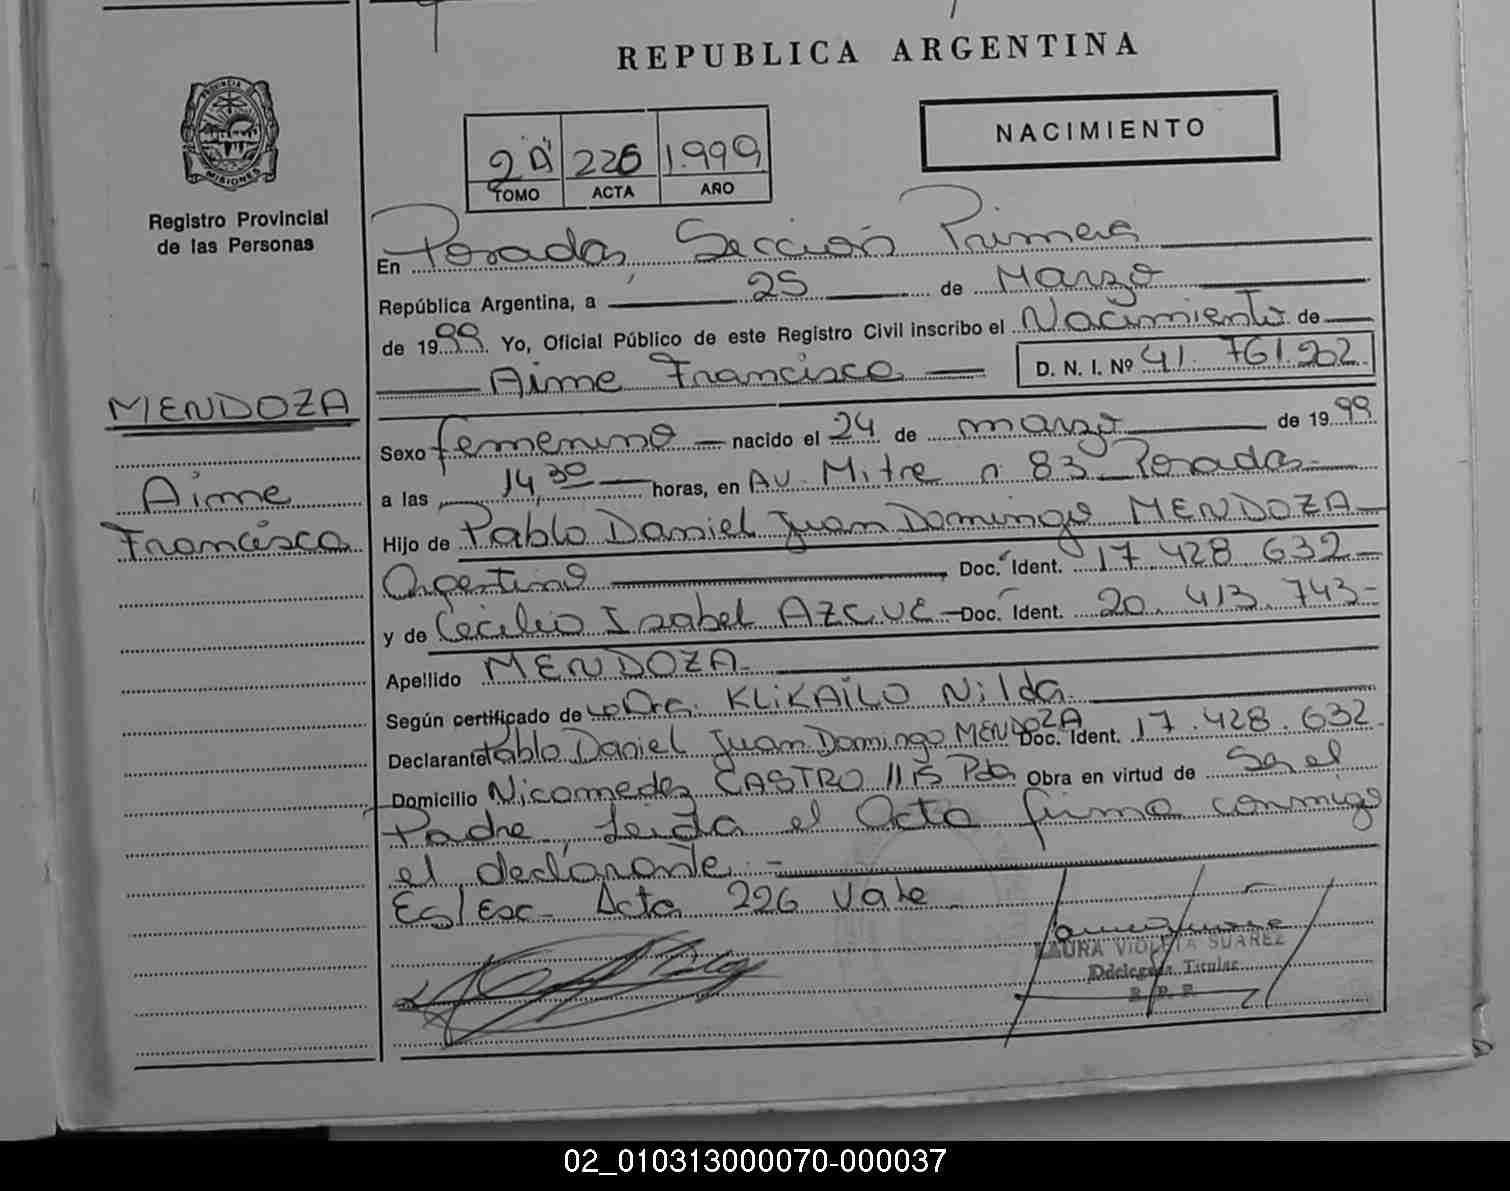 REPUBLICA ARGENTINA
PROVINCIA DE
MISIONES
Registro Provincial
de las Personas
2 "A" 226 1.999
TOMO ACTA AÑO
NACIMIENTO
En Posadas, Sección Primera
República Argentina, a 25 de Marzo
de 1999. Yo, Oficial Público de este Registro Civil inscribo el Nacimiento de
Aime Francisca D. N. I. Nº 41.761.202
MENDOZA
Aime
Francisca
Sexo femenino nacido el 24 de marzo de 1999
a las 14,30 horas, en Av. Mitre n 83 Posadas-
Hijo de Pablo Daniel Juan Domingo MENDOZA
Argentino Doc. Ident. 17.428.632-
y de Cecilia Isabel AZCUE - Doc. Ident. 20.413.743-
Apellido MENDOZA
Según certificado de la Dra. KLIKAILO Nilda
Declarante Pablo Daniel Juan Domingo MENDOZA Doc. Ident. 17.428.632
Domicilio Nicomedes CASTRO 1115 Pdas Obra en virtud de Ser el
Padre, Leida el Acta firma conmigo
el declarante.-
Es/Esc- Acta 226 Vale-
LAURA VIOLETA SUAREZ
Ddelegada Titular
R. P. P.
02_010313000070-000037